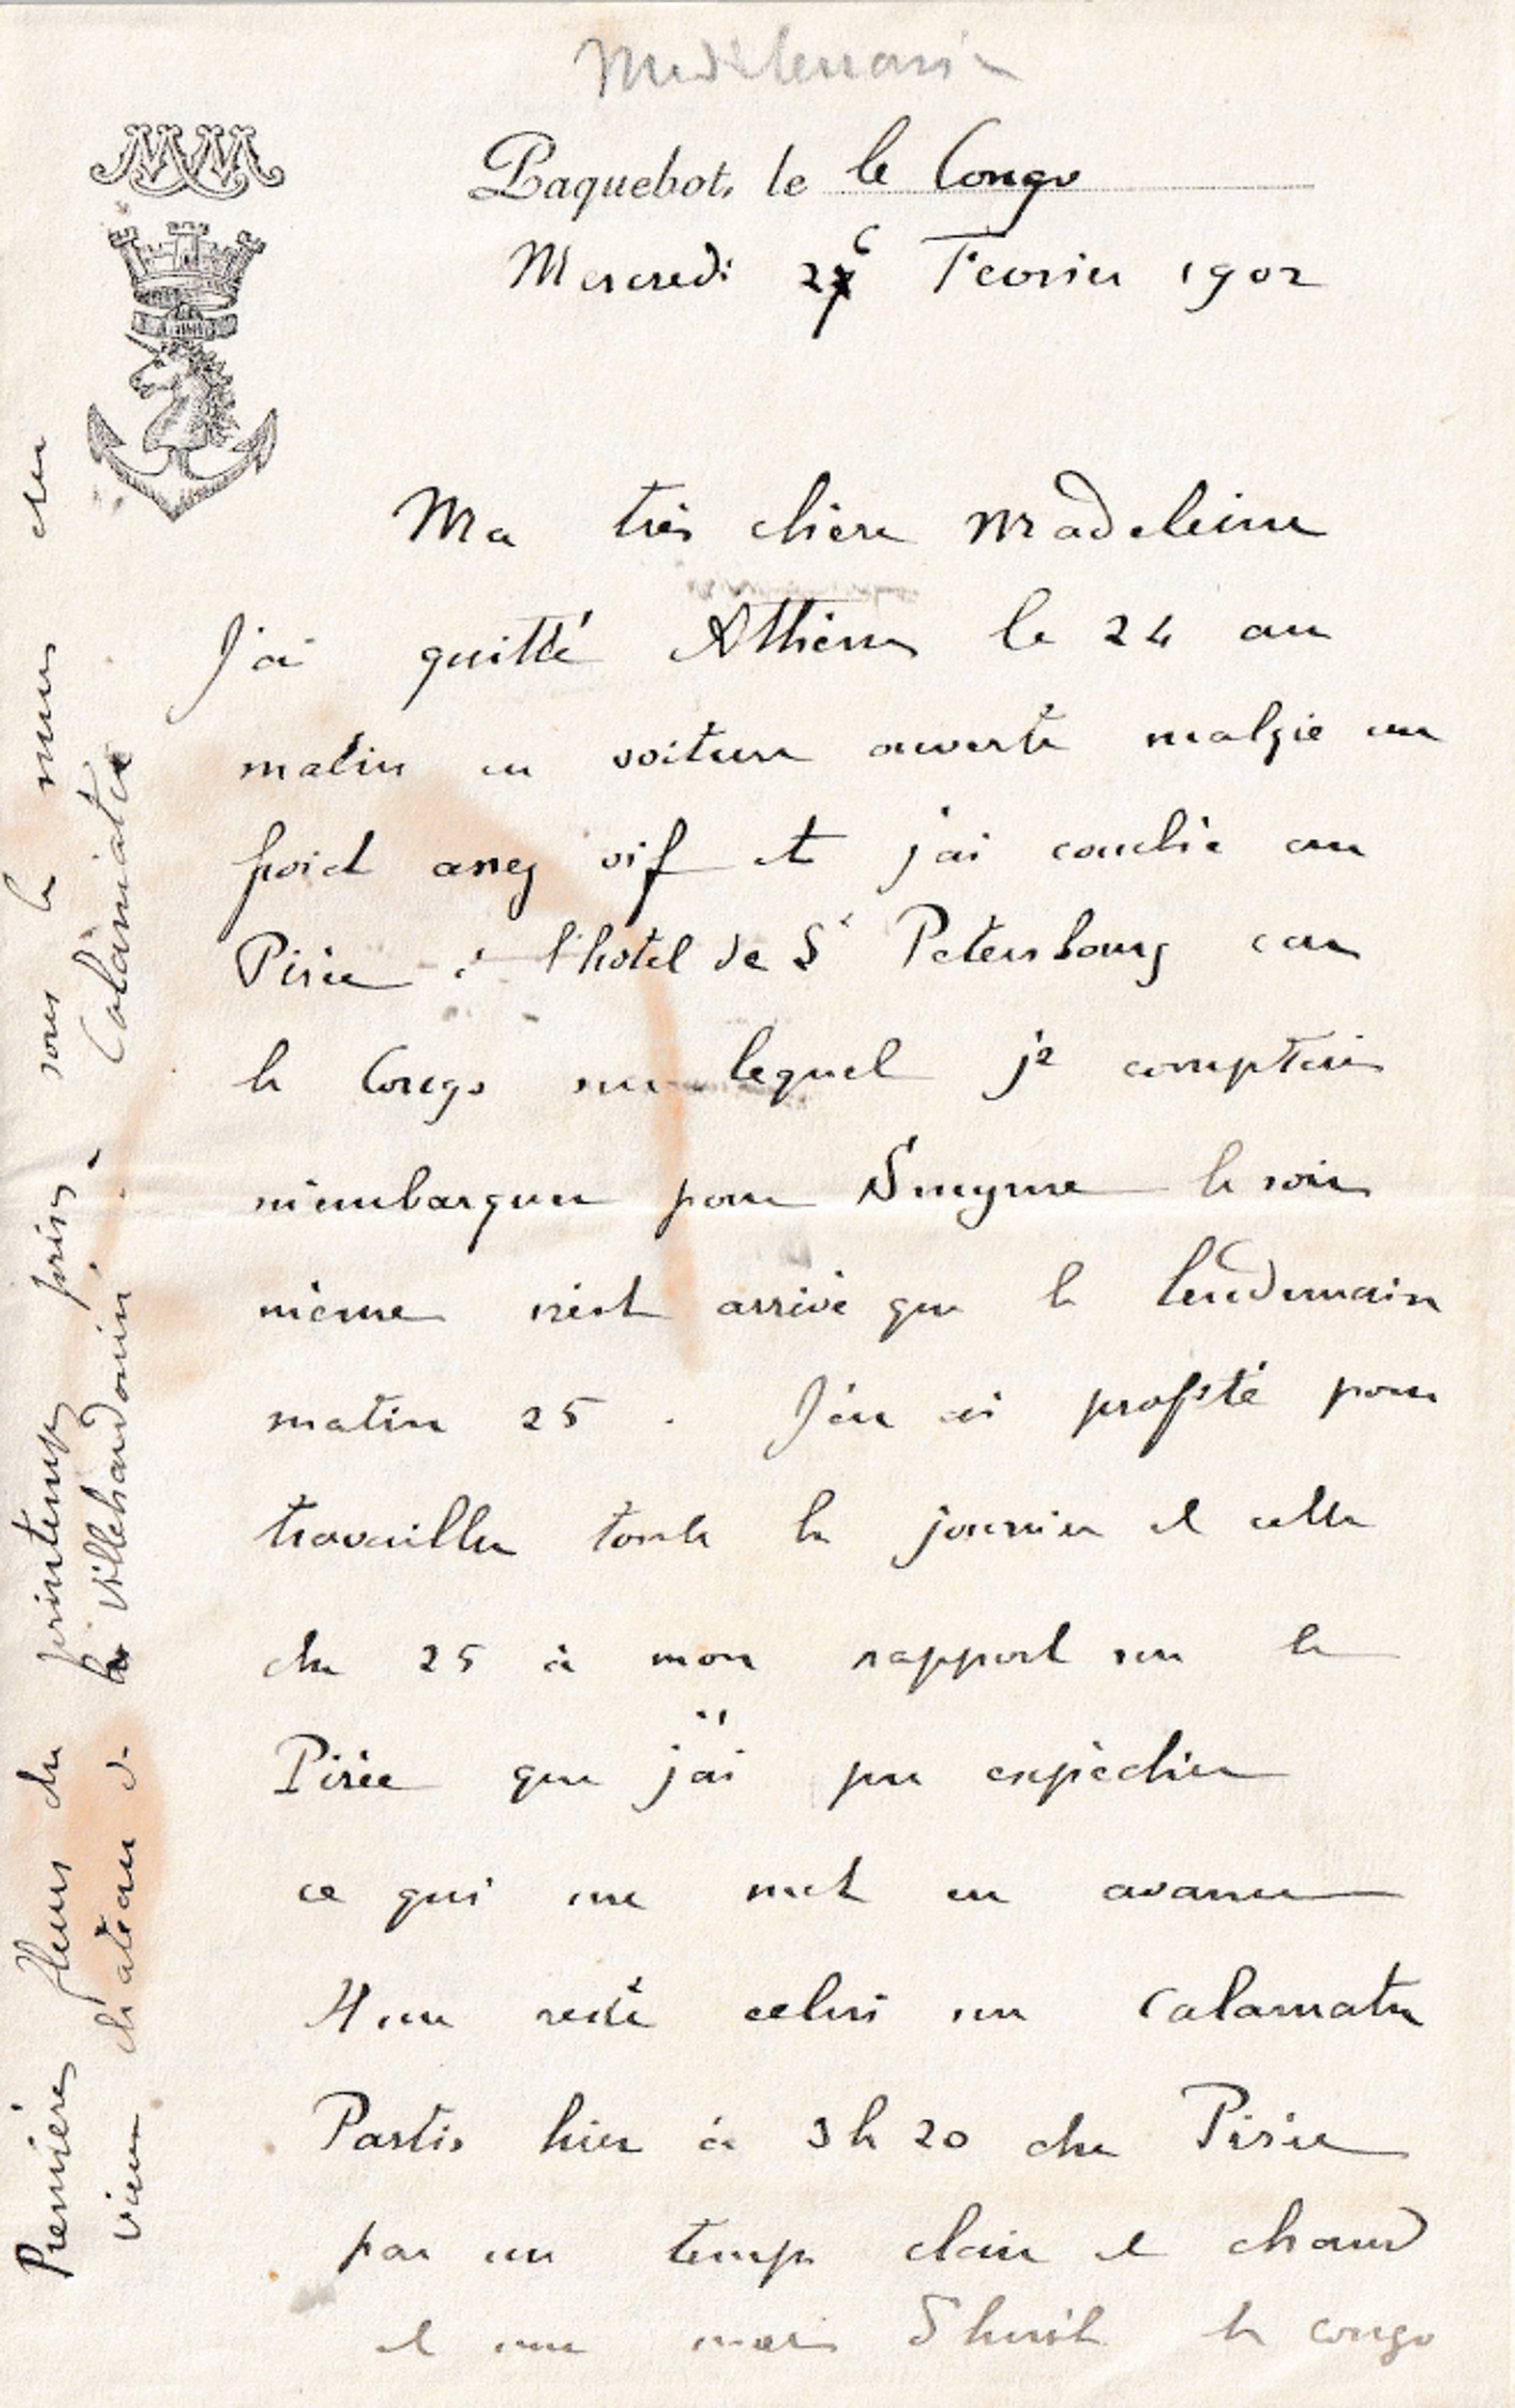 Mediterranée
MM
Paquebot, le le Congo
Mercredi 26 Fevrier 1902
Ma très chère Madeleine
J'ai quitté Athènes le 24 au
matin en voiture ouverte malgré un
froid assez vif et j'ai couché au
Pirée à l'hotel de St Petersbourg car
le Congo sur lequel je comptais
m'embarquer pour Smyrne le soir
même n'est arrivé que le lendemain
matin 25. J'en ai profité pour
travailler toute la journée et celle
du 25 à mon rapport sur le
Pirée que j'ai pu expédier
ce qui me met en avance
Il me reste celui sur Calamata
Partis hier à 3h 20 du Pirée
par un temps clair et chaud
et une mer d'huile le Congo
Premières fleurs du printemps prises sous les murs du
vieux château de Villehardouin. Calamata